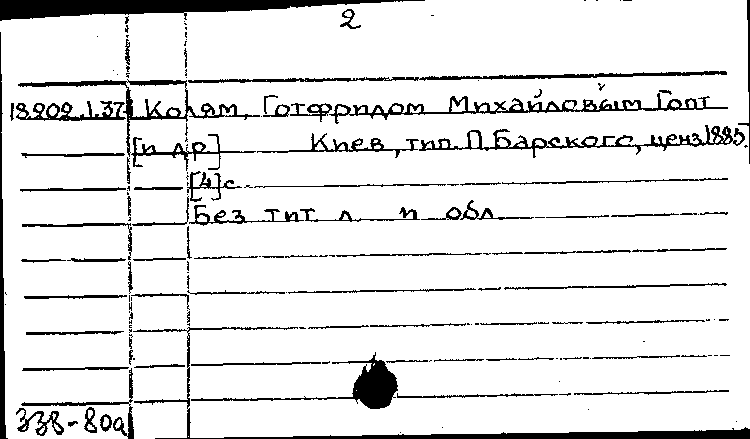 2
18202.1.37 Колям, Готфридом Михайловым Гопт
[и др] Киев, тип. П. Барского, ценз 1885.
[4] с.
Без тит л и обл
338-80а